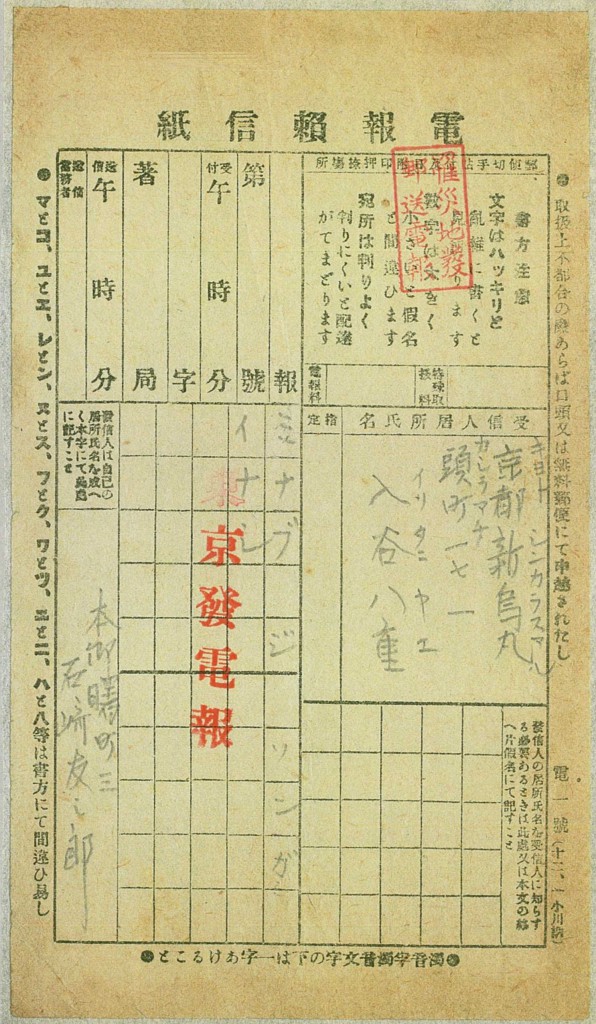 電報賴信紙
取扱上不都合の廉あらば口頭又は無料郵便にて申越されたし
電一號(十二、一 小川納)
罹災地發
郵送電報
書方注意
文字はハッキリと
亂雜に書くと
數字は大きく
小さいと假名
と間違ひます
宛所は判りよく
判りにくいと配達
がてまどります
特殊取扱料
電報料
受信人居所氏名
指定
キョート シンカラスマル
京都新烏丸
カシラマチ
頭町一七一
イリタニ ヤエ
入谷八重
發信人の居所氏名を受信人に知らす
る必要あるときは此處又は本文の終
へ片假名にて記すこと
報
第 號
受付 午 時 分
字
著 局
送信 午 時 分
通信事務者
ミナブジ
東京發電報
發信人は自己の
居所氏名を成へ
く本字にて此處
に記すこと
本郷曙町三
石崎友之郎
マとコ、ユとエ、レとン、ヌとス、フとク、ワとツ、エとニ、ハと八等は書方にて間違ひ易し
濁音字濁音文字の下は一字あけること